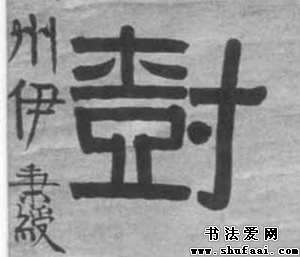 州伊秉綬
书法爱网
www.shufaai.com